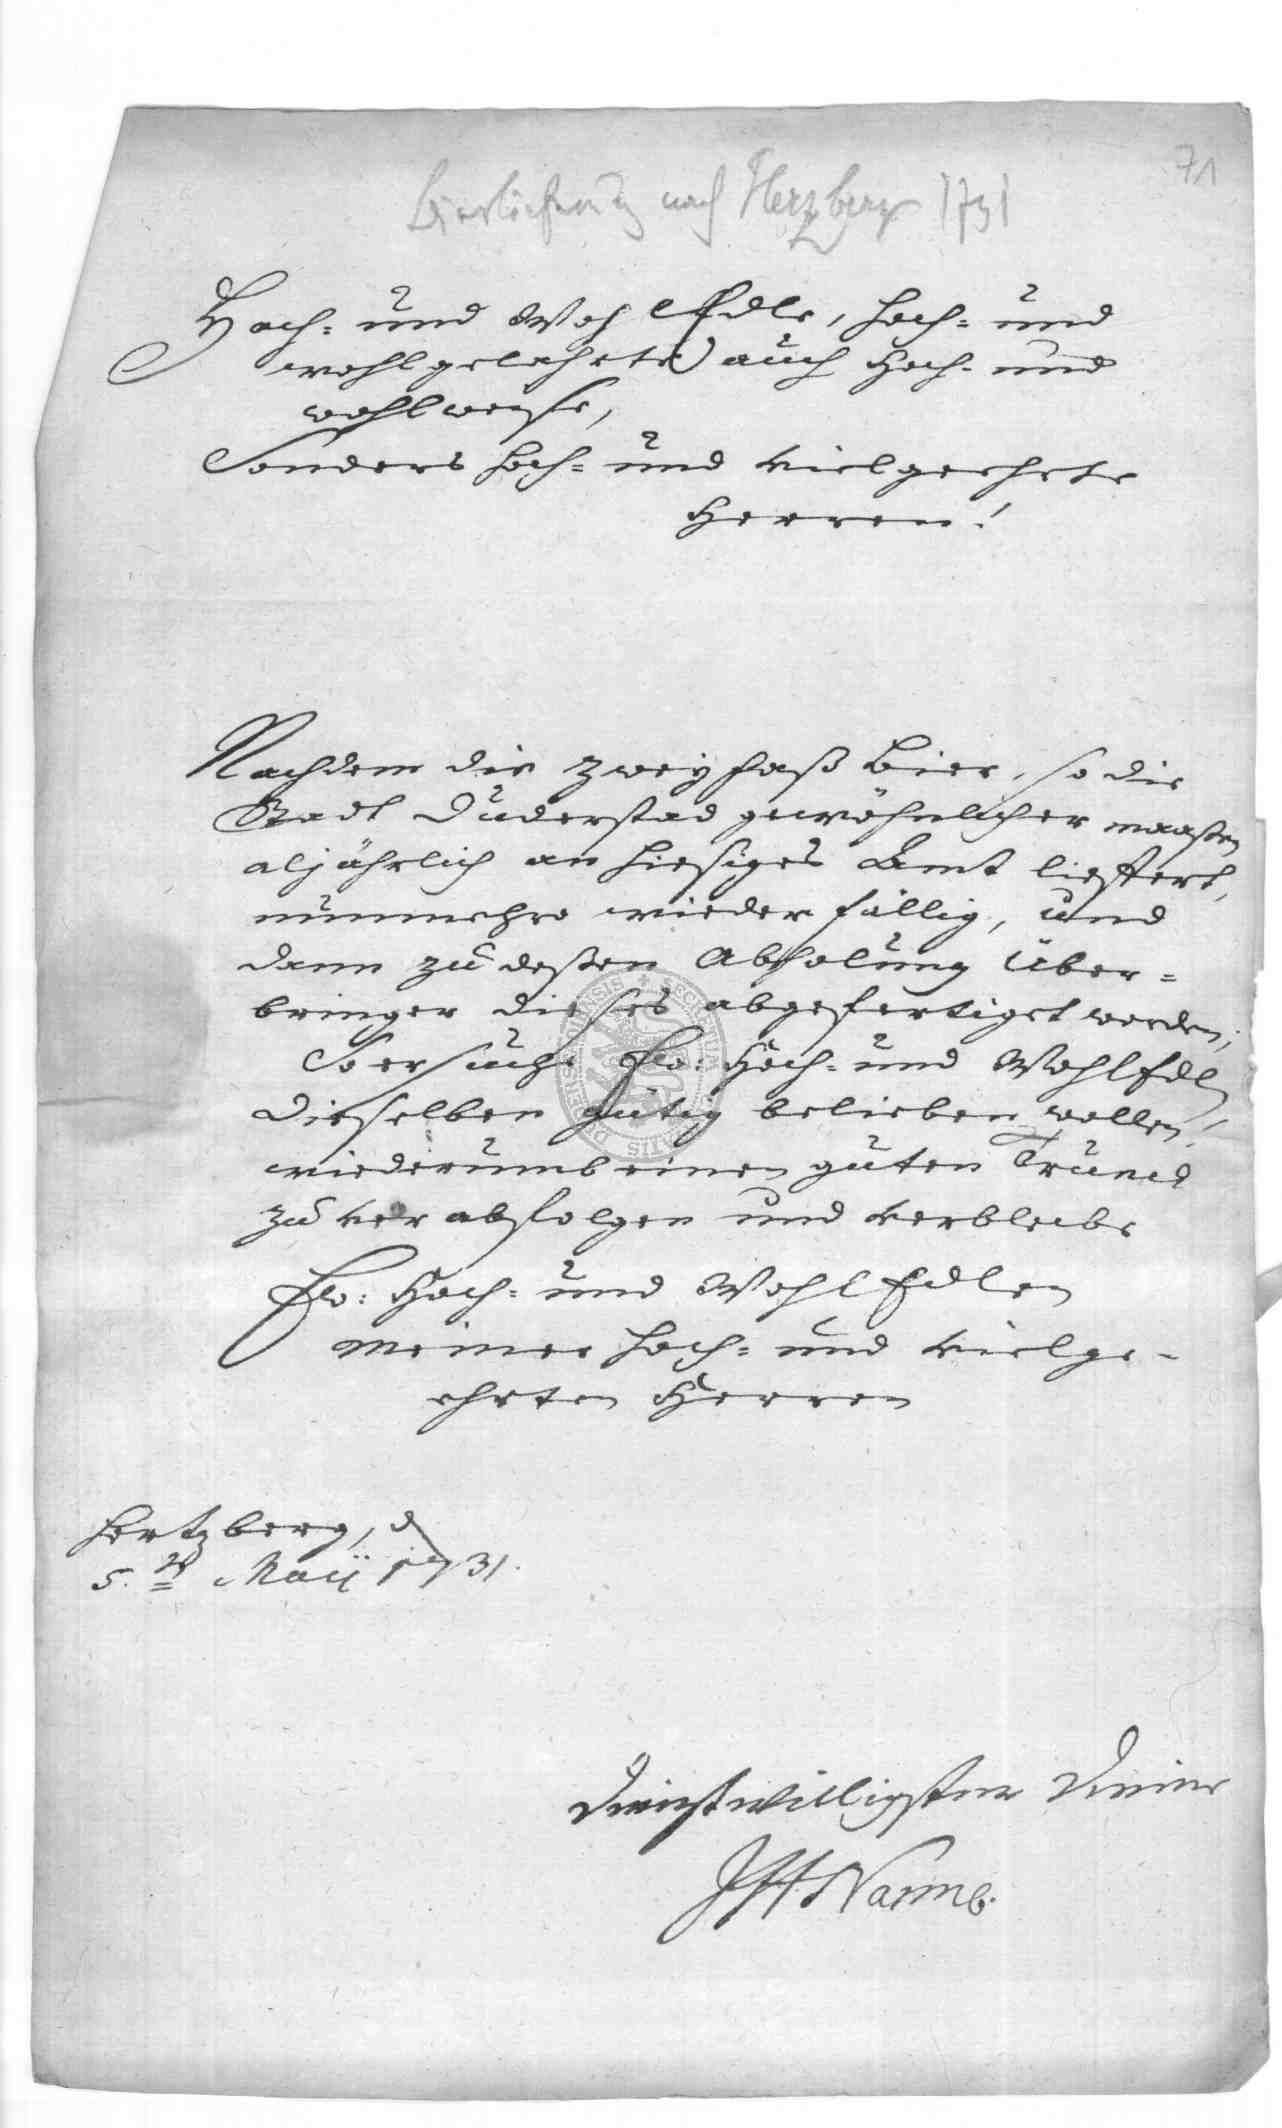 71
Bierlieferung nach Herzberg 1731
Hoch- und Wohl Edle, Hoch- und
wohlgelahrte auch Hoch- und
wohlweyse,
Sonders Hoch- und vielgeehrte
Herren!
Nachdem die zwey faß Bier, so die
Stadt Duderstad gewöhnlicher maaßen
aljährlich an hiesiges Amt liefert,
nunmehro wieder fällig, und
dann zu deßen Abholung Über-
bringer dieses abgefertiget worden;
So ersuche Ew: Hoch- und WohlEdl
dieselben gütig belieben wollen,
wiederumb einen guten Trunck
zu verabfolgen und verbleibe
Ew: Hoch- und WohlEdlen
Meiner Hoch- und vielge-
ehrten Herren
Hertzberg, d
5. Maij 1731.
dienstwilligster Diener